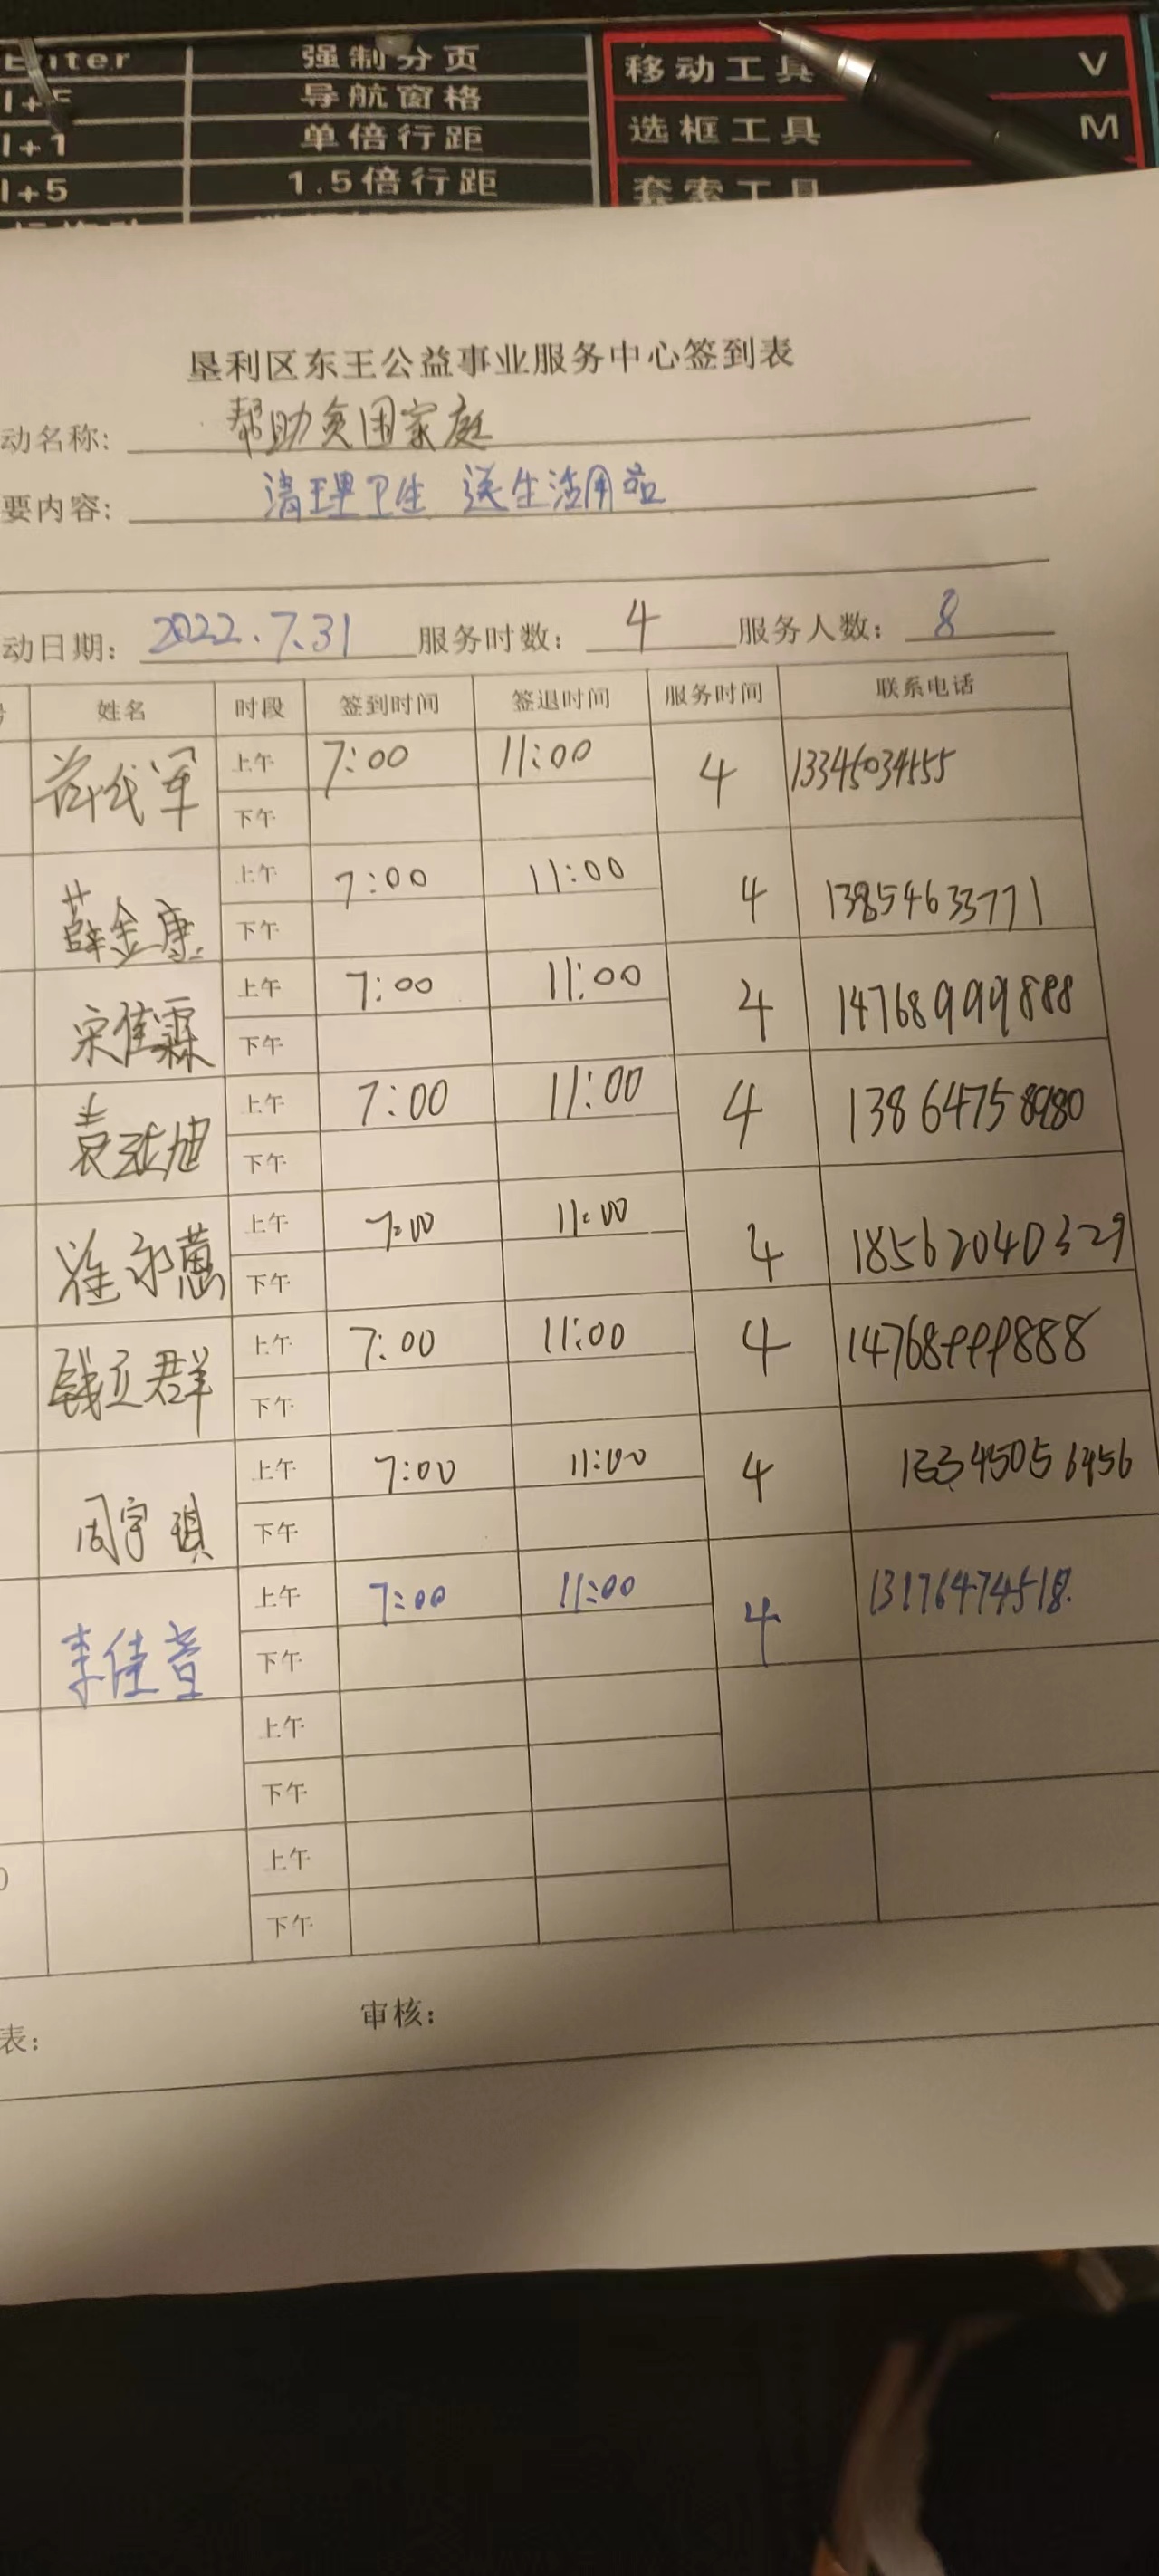 Enter 强制分页 移动工具 V
导航窗格
l+1 单倍行距 选框工具 M
l+5 1.5倍行距 套索工具
垦利区东王公益事业服务中心签到表
动名称: 帮助贫困家庭
要内容: 清理卫生 送生活用品
动日期: 2022.7.31 服务时数: 4 服务人数: 8
姓名 时段 签到时间 签退时间 服务时间 联系电话
上午 7:00 11:00 4
下午
薛金康 上午 7:00 11:00 4 13854633771
下午
宋佳霖 上午 7:00 11:00 4 14768999888
下午
上午 7:00 11:00 4 13864758980
下午
上午 7:00 11:00 4 18562040329
下午
钱立群 上午 7:00 11:00 4 14768999888
下午
周宇琪 上午 7:00 11:00 4 13345056456
下午
李佳萱 上午 7:00 11:00 4 13176474518.
下午
上午
下午
上午
下午
表: 审核: